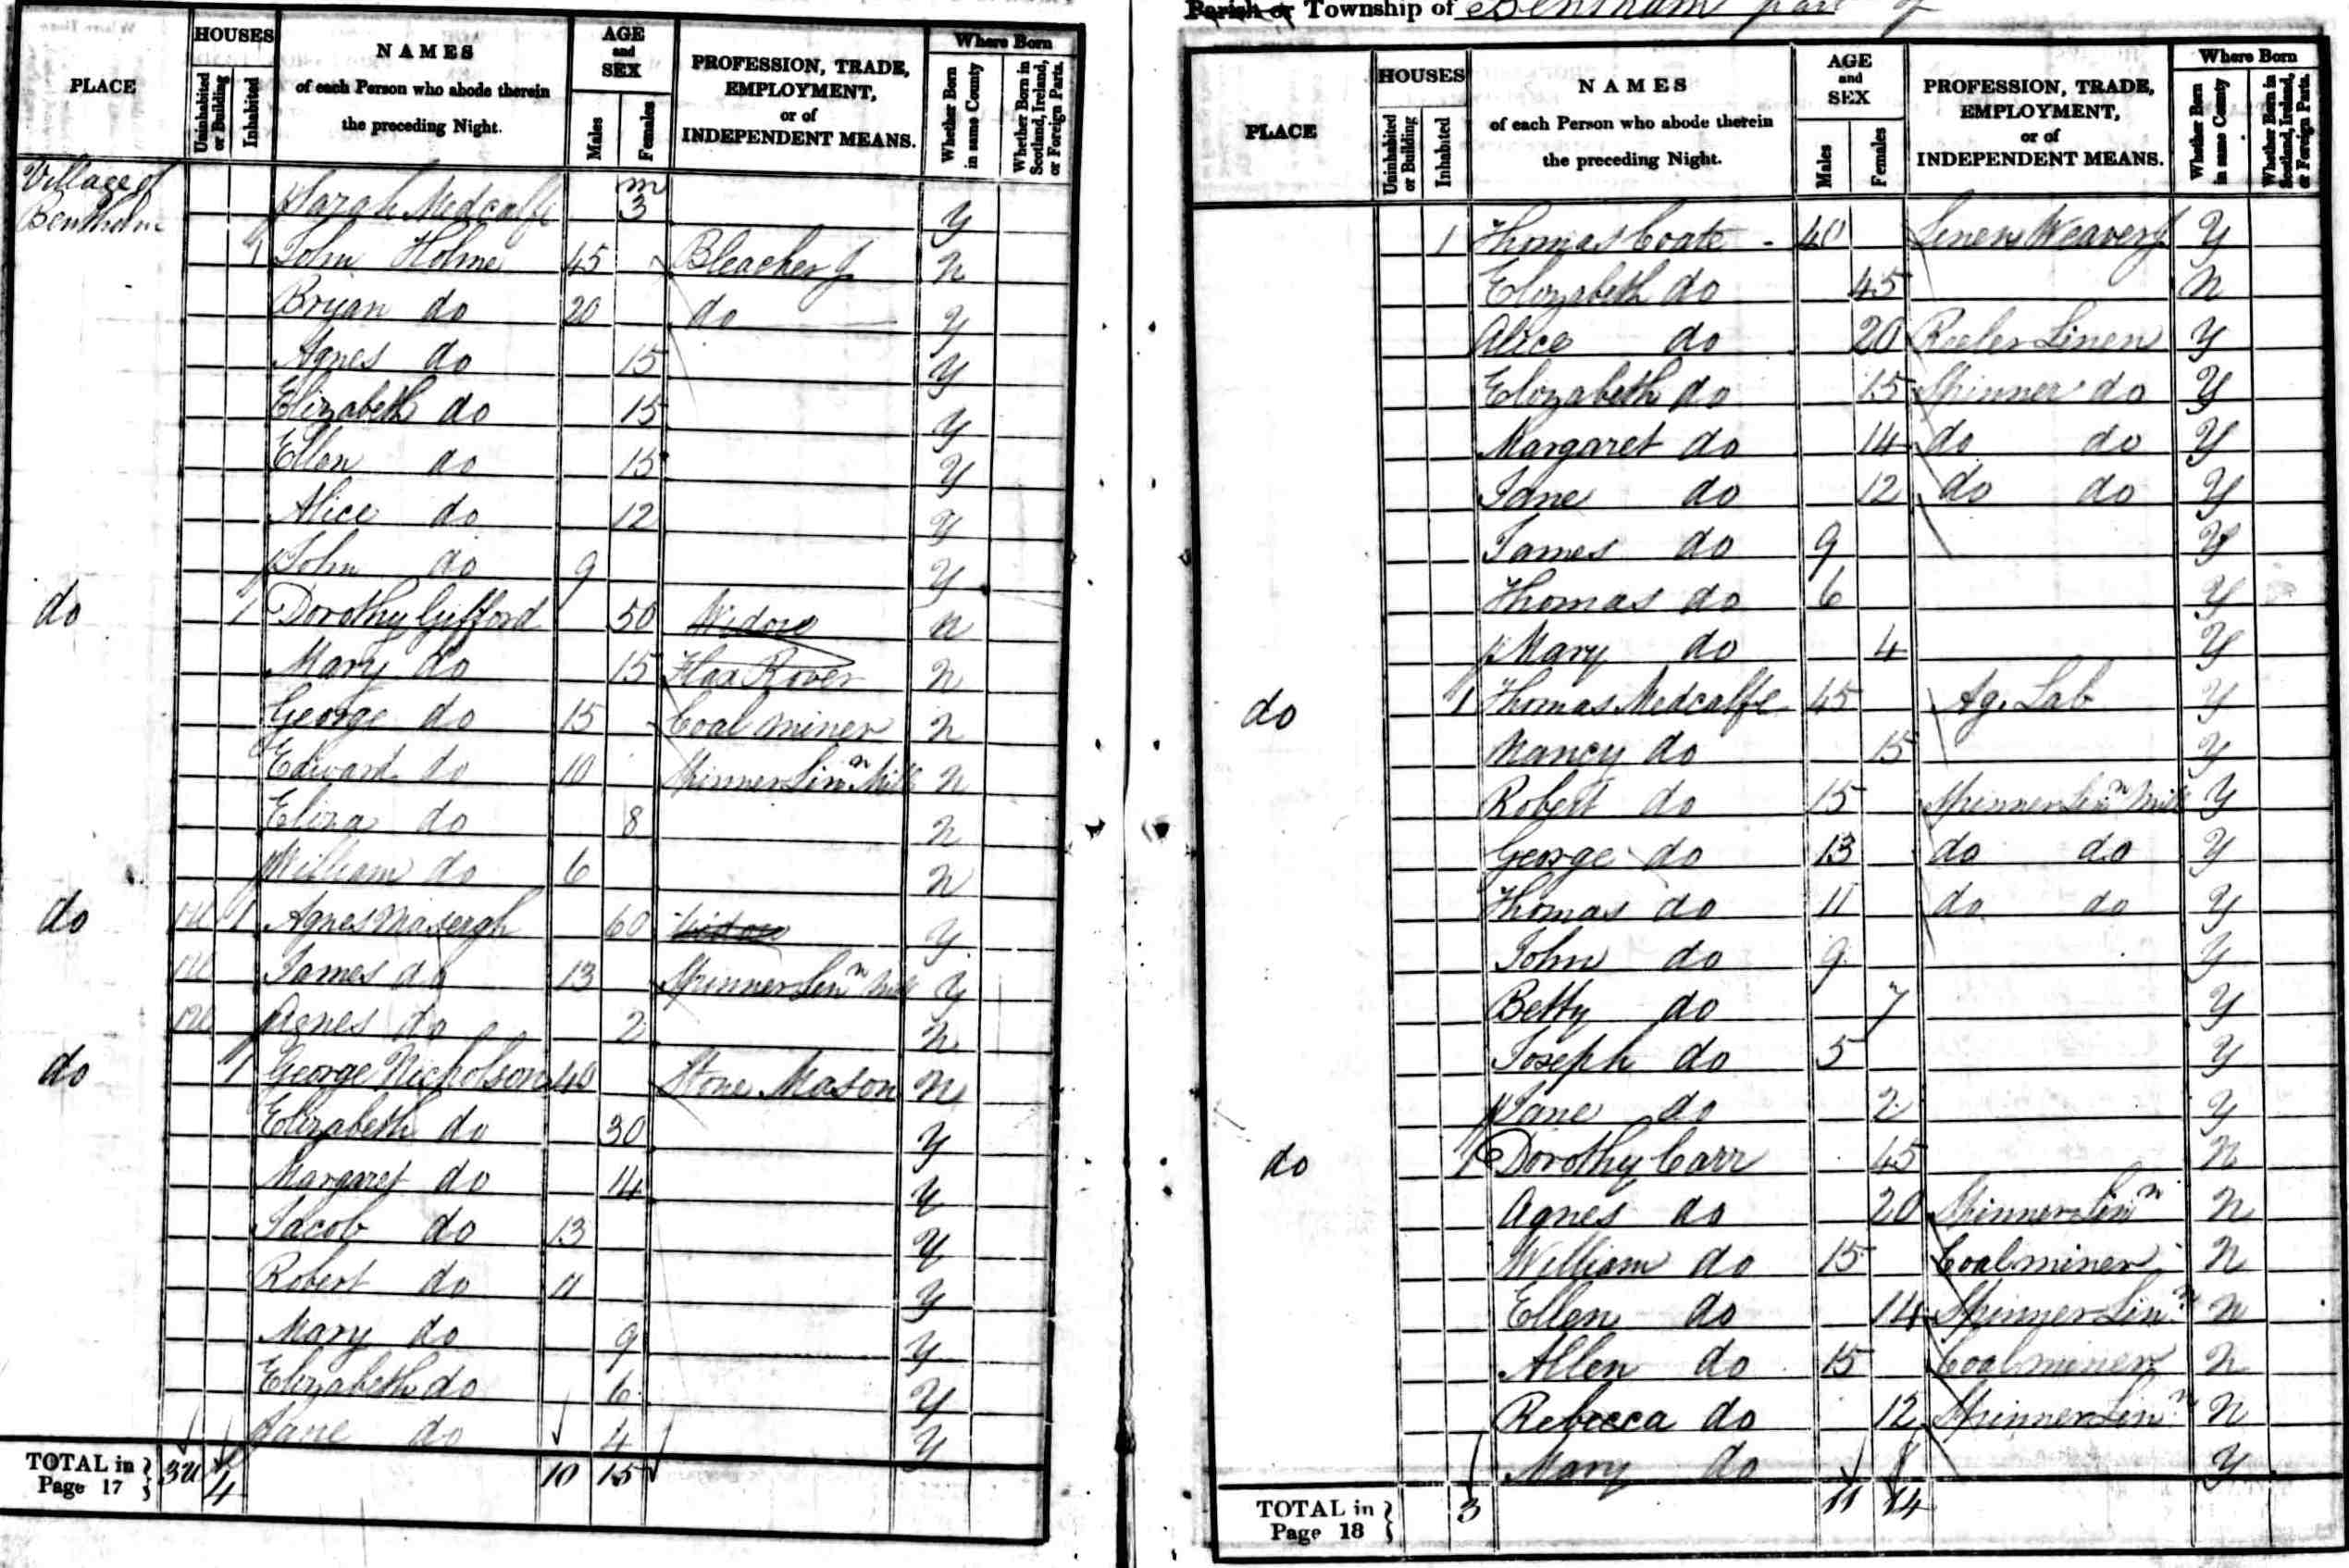 PLACE HOUSES Uninhabited or Building Inhabited NAMES of each Person who abode therein the preceding Night. AGE and SEX Males Females PROFESSION, TRADE, EMPLOYMENT, or of INDEPENDENT MEANS. Where Born Whether Born in same County Whether Born in Scotland, Ireland, or Foreign Parts.
Village of Bentham Sarah Medcalfe m 3 Y
1 John Holme 45 Bleacher J N
Bryan do 20 do Y
Agnes do 15 Y
Elizabeth do 15 Y
Ellen do 15 Y
Alice do 12 Y
John do 9 Y
do 1 Dorothy Gifford 50 Widow N
Mary do 15 Flax Rover N
George do 15 Coal miner N
Edward do 10 Spinner Linn Mill N
Eliza do 8 N
William do 6 N
do 1 Agnes 60 Widow Y
James do 13 Spinner Linn Mill Y
Agnes do 2 N
do 1 George Nicholson 40 Stone Mason N
Elizabeth do 30 Y
Margaret do 14 Y
Jacob do 13 Y
Robert do 11 Y
Mary do 9 Y
Elizabeth do 6 Y
Jane do 4 Y
TOTAL in Page 17 3u 4 10 15
Parish or Township of Bentham part of
PLACE HOUSES Uninhabited or Building Inhabited NAMES of each Person who abode therein the preceding Night. AGE and SEX Males Females PROFESSION, TRADE, EMPLOYMENT, or of INDEPENDENT MEANS. Where Born Whether Born in same County Whether Born in Scotland, Ireland, or Foreign Parts.
1 Thomas Coate 40 Linen Weaver J Y
Elizabeth do 45 N
Alice do 20 Reeler Linen Y
Elizabeth do 15 Spinner do Y
Margaret do 14 do do Y
Jane do 12 do do Y
James do 9 Y
Thomas do 6 Y
Mary do 4 Y
do 1 Thomas Medcalfe 45 Ag. Lab Y
Nancy do 15 Y
Robert do 15 Spinner Linn Mill Y
George do 13 do do Y
Thomas do 11 do do Y
John do 9 Y
Betty do 7 Y
Joseph do 5 Y
Jane do 2 Y
do 1 Dorothy Carr 45 N
Agnes do 20 Spinner Linn N
William do 15 Coalminer N
Ellen do 14 Spinner Linn N
Allen do 15 Coalminer N
Rebecca do 12 Spinner Linn N
Mary do 8 Y
TOTAL in Page 18 3 11 14